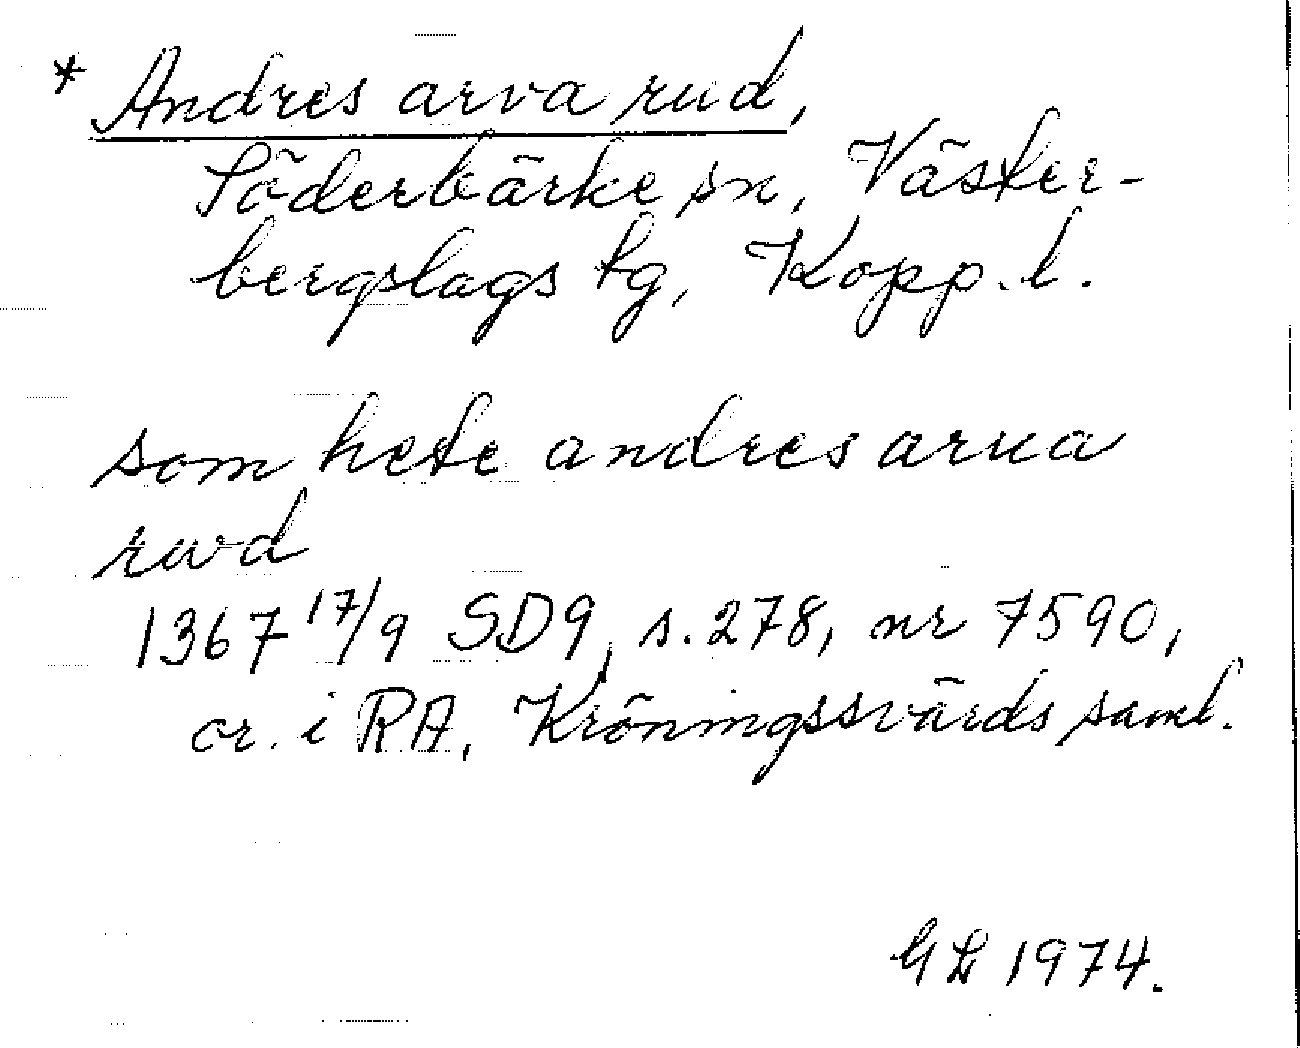 * Andres arva rud,
Söderbärke sn, Väster-
bergslags tg, Kopp. l.
som hete andres arua
rwd
1367 17/9 SD9, s. 278, nr 7590,
or. i RA, Kröningssvärds saml.
GL 1974.